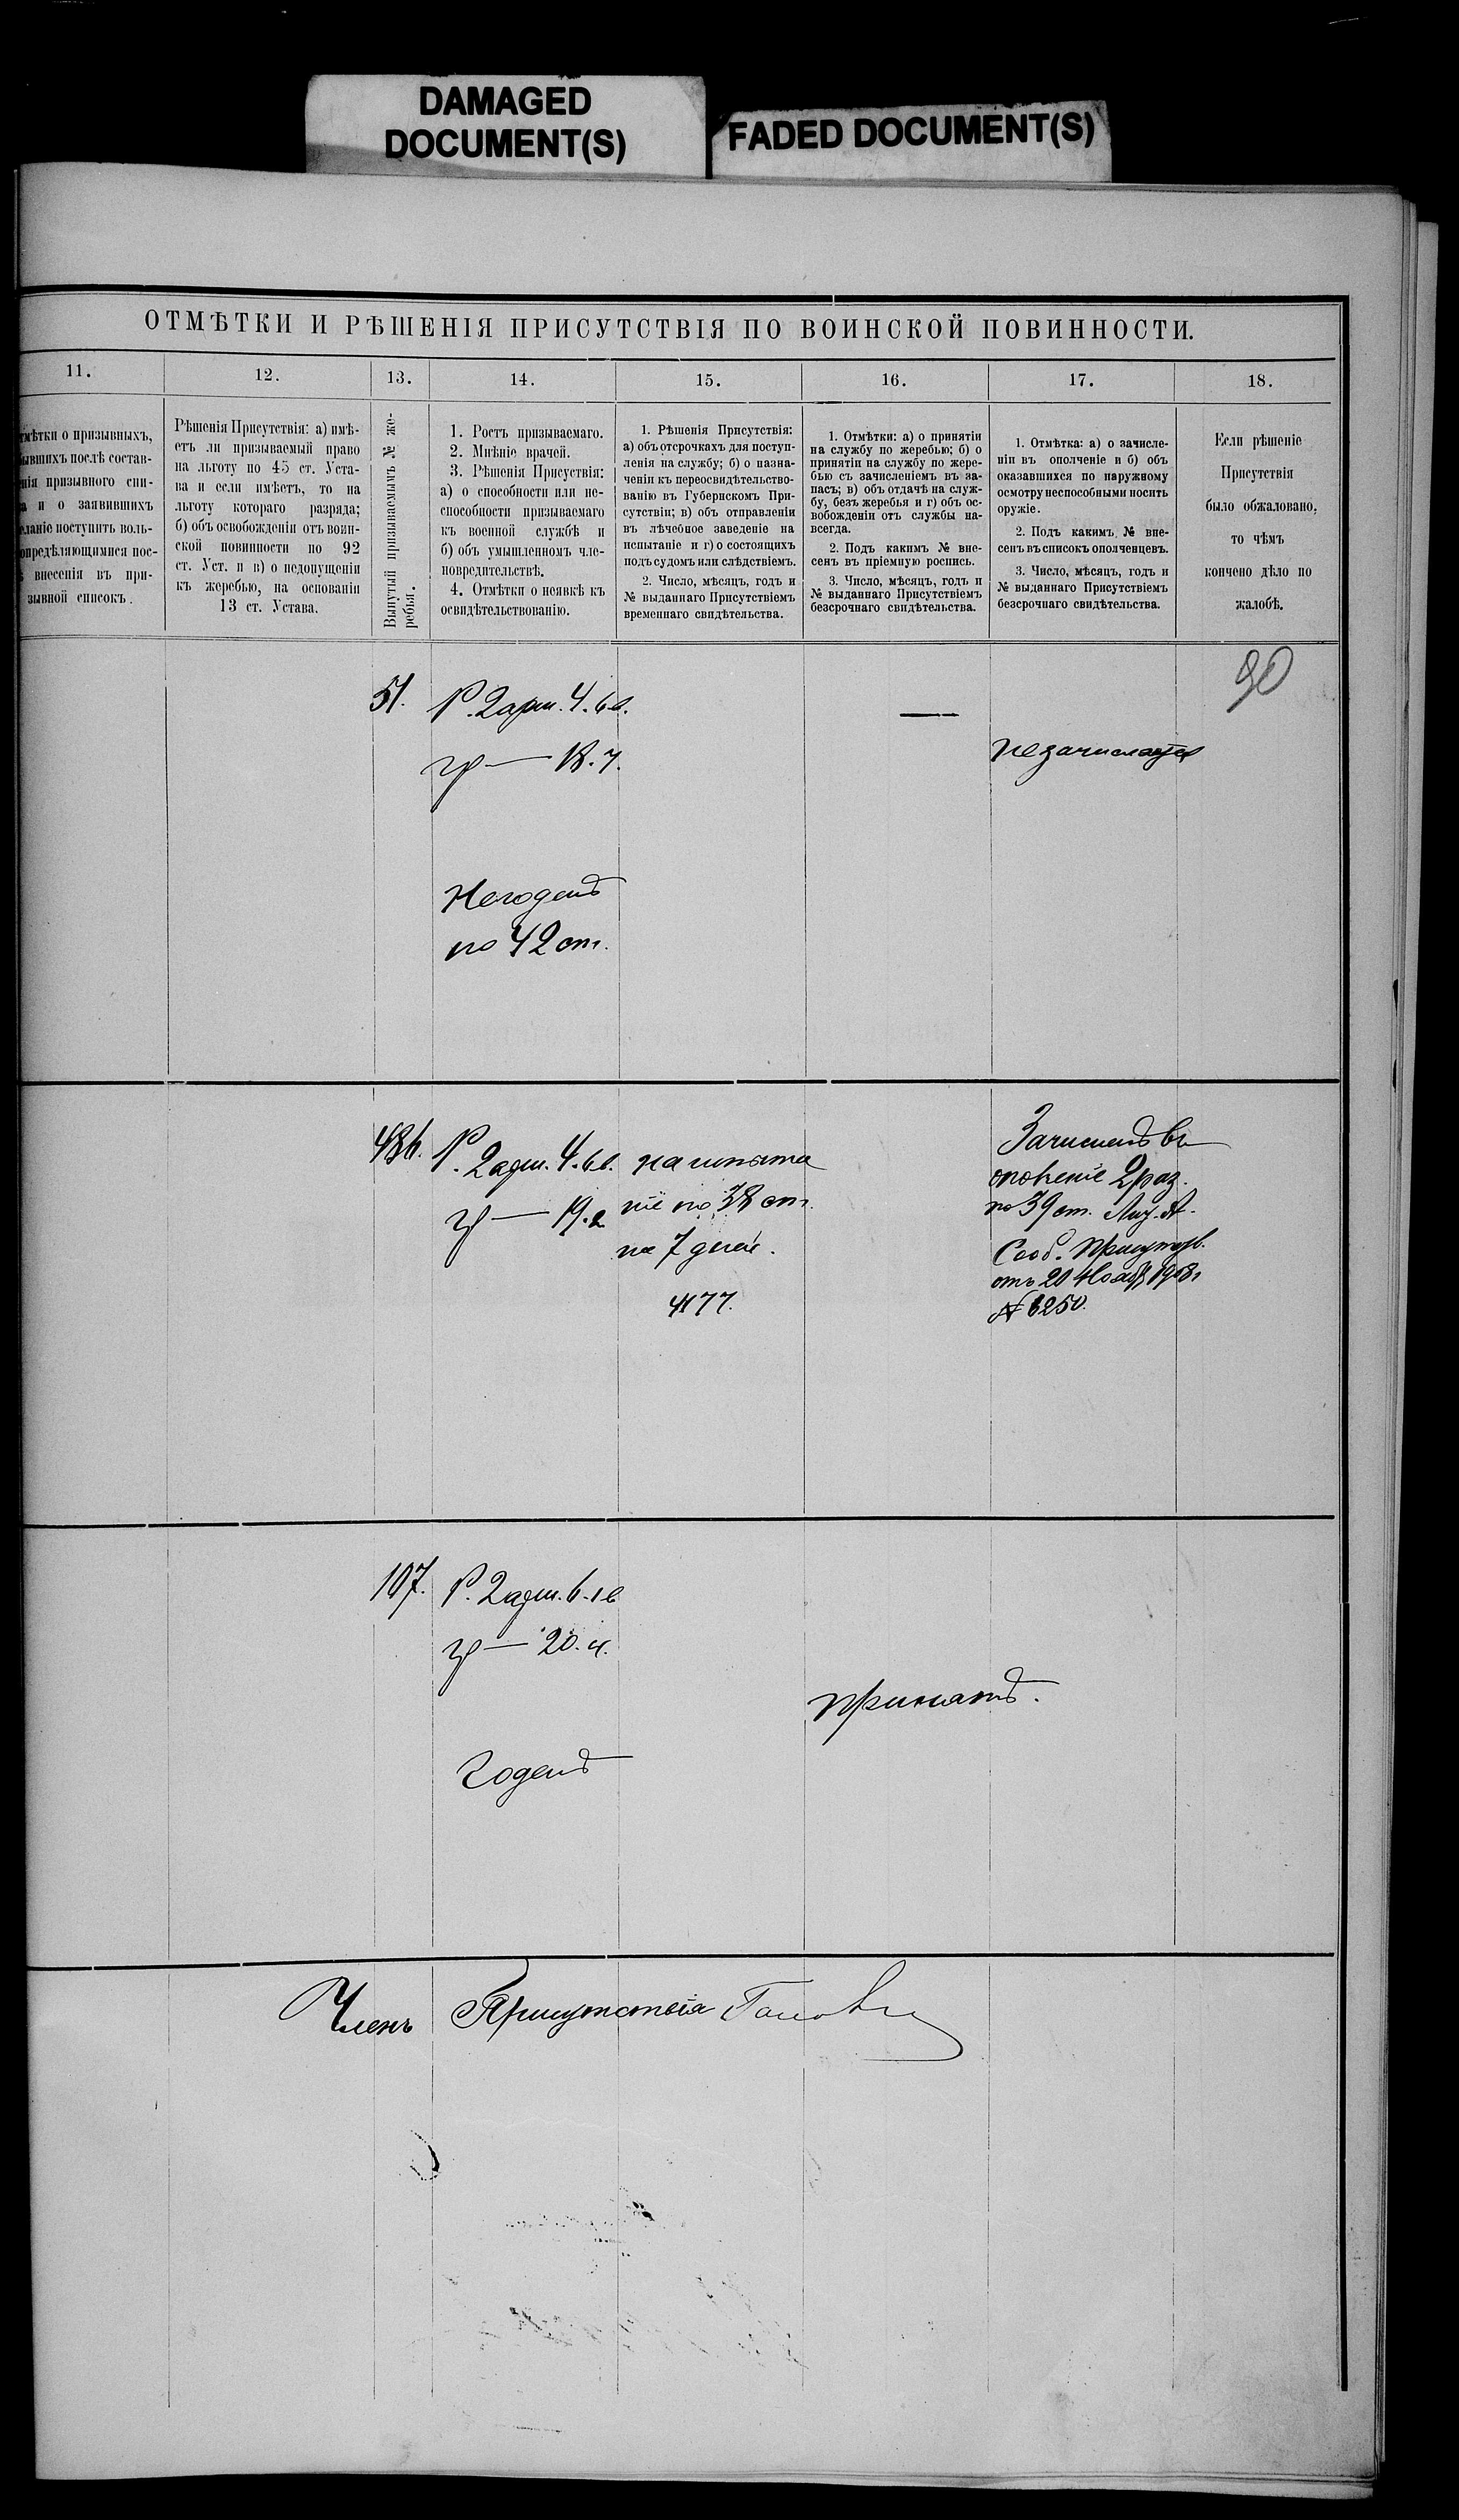 DAMAGED
DOCUMENT(S)
FADED DOCUMENT(S)
ОТМѢТКИ И РѢШЕНІЯ ПРИСУТСТВІЯ ПО ВОИНСКОЙ ПОВИННОСТИ.
11.
12.
13.
14.
15.
16.
17.
18.
тмѣтки о призывныхъ,
ывшихъ послѣ состав-
нія призывного спи-
а и о заявившихъ
еланіе поступить воль-
опредѣляющимися пос-
внесенія въ при-
зывной списокъ.
Рѣшенія Присутствія: а) имѣ-
етъ ли призываемый право
на льготу по 45 ст. Уста-
ва и если имѣетъ, то на
льготу котораго разряда;
б) объ освобожденіи отъ воин-
ской повинности по 92
ст. Уст. и в) о недопущеніи
къ жеребью, на основаніи
13 ст. Устава.
Вынутый призываемымъ № же-
ребья.
1. Ростъ призываемаго.
2. Мнѣніе врачей.
3. Рѣшенія Присуствія:
а) о способности или не-
способности призываемаго
къ военной службѣ и
б) объ умышленномъ чле-
новредительствѣ.
4. Отмѣтки о неявкѣ къ
освидѣтельствованію.
1. Рѣшенія Присутствія:
а) объ отсрочкахъ для поступ-
ленія на службу; б) о назна-
ченіи къ переосвидѣтельство-
ванію въ Губернскомъ При-
сутствіи; в) объ отправленіи
въ лѣчебное заведеніе на
испытаніе и г) о состоящихъ
подъ судомъ или слѣдствіемъ.
2. Число, мѣсяцъ, годъ и
№ выданнаго Присутствіемъ
временнаго свидѣтельства.
1. Отмѣтки: а) о принятіи
на службу по жеребью; б) о
принятіи на службу по жере-
бью съ зачисленіемъ въ за-
пасъ; в) объ отдачѣ на служ-
бу, безъ жеребья и г) объ ос-
вобожденіи отъ службы на-
всегда.
2. Подъ какимъ № вне-
сенъ въ пріемную роспись.
3. Число, мѣсяцъ, годъ и
№ выданнаго Присутствіемъ
безсрочнаго свидѣтельства.
1. Отмѣтка: а) о зачисле-
ніи въ ополченіе и б) объ
оказавшихся по наружному
осмотру неспособными носить
оружіе.
2. Подъ какимъ № вне-
сенъ въ списокъ ополченцевъ.
3. Число, мѣсяцъ, годъ и
№ выданнаго Присутствіемъ
безсрочнаго свидѣтельства.
Если рѣшеніе
Присутствія
было обжаловано,
то чѣмъ
кончено дѣло по
жалобѣ.
90
51.
Р. 2 арш. 4. 6 в.
гр — 18. 7.
Негоденъ
по 42 ст.
—
Незачисляется
486.
Р. 2 арш. 4. 6 в.
гр — 19. 2
на испыта
ніе по 38 ст.
на 7 дней.
4177.
Зачисленъ въ
ополченіе 2 раз.
по 39 ст. Лит. А.
Сооб. Присутств.
отъ 20 Ноября 1908 г
№ 6250.
107.
Р. 2 арш. 6. 1 в
гр — 20. 4.
Годенъ
Принятъ.
Членъ Присутствія